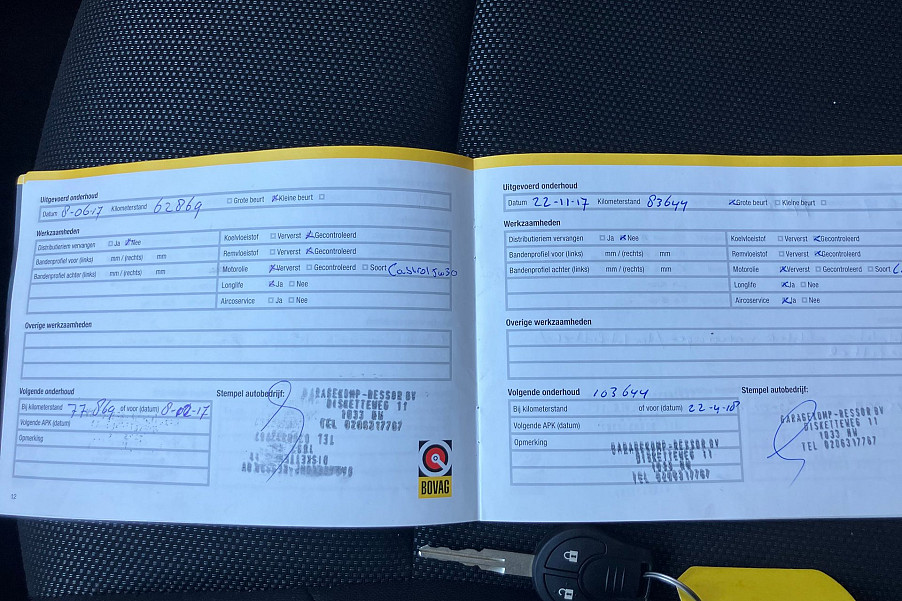 Uitgevoerd onderhoud
Datum 8-06-17 Kilometerstand 62869 Grote beurt Kleine beurt
Werkzaamheden
Distributieriem vervangen Ja Nee Koelvloeistof Ververst Gecontroleerd
Bandenprofiel voor (links) mm / (rechts) mm Remvloeistof Ververst Gecontroleerd
Bandenprofiel achter (links) mm / (rechts) mm Motorolie Ververst Gecontroleerd Soort Castrol 5w30
Longlife Ja Nee
Aircoservice Ja Nee
Overige werkzaamheden
Volgende onderhoud
Bij kilometerstand 77.869 of voor (datum) 8-02-17
Volgende APK (datum)
Opmerking
Stempel autobedrijf:
GARAGEKOMP-RESSOR BV
DISKETTEWEG 11
1033 BW
TEL 0206317767
BOVAG
12
Uitgevoerd onderhoud
Datum 22-11-17 Kilometerstand 83644 Grote beurt Kleine beurt
Werkzaamheden
Distributieriem vervangen Ja Nee Koelvloeistof Ververst Gecontroleerd
Bandenprofiel voor (links) mm / (rechts) mm Remvloeistof Ververst Gecontroleerd
Bandenprofiel achter (links) mm / (rechts) mm Motorolie Ververst Gecontroleerd Soort
Longlife Ja Nee
Aircoservice Ja Nee
Overige werkzaamheden
Volgende onderhoud 103644
Bij kilometerstand of voor (datum) 22-4-18
Volgende APK (datum)
Opmerking
GARAGEKOMP-RESSOR BV
DISKETTEWEG 11
1033 BW
TEL 0206317767
Stempel autobedrijf:
GARAGEKOMP-RESSOR BV
DISKETTEWEG 11
1033 BW
TEL 0206317767